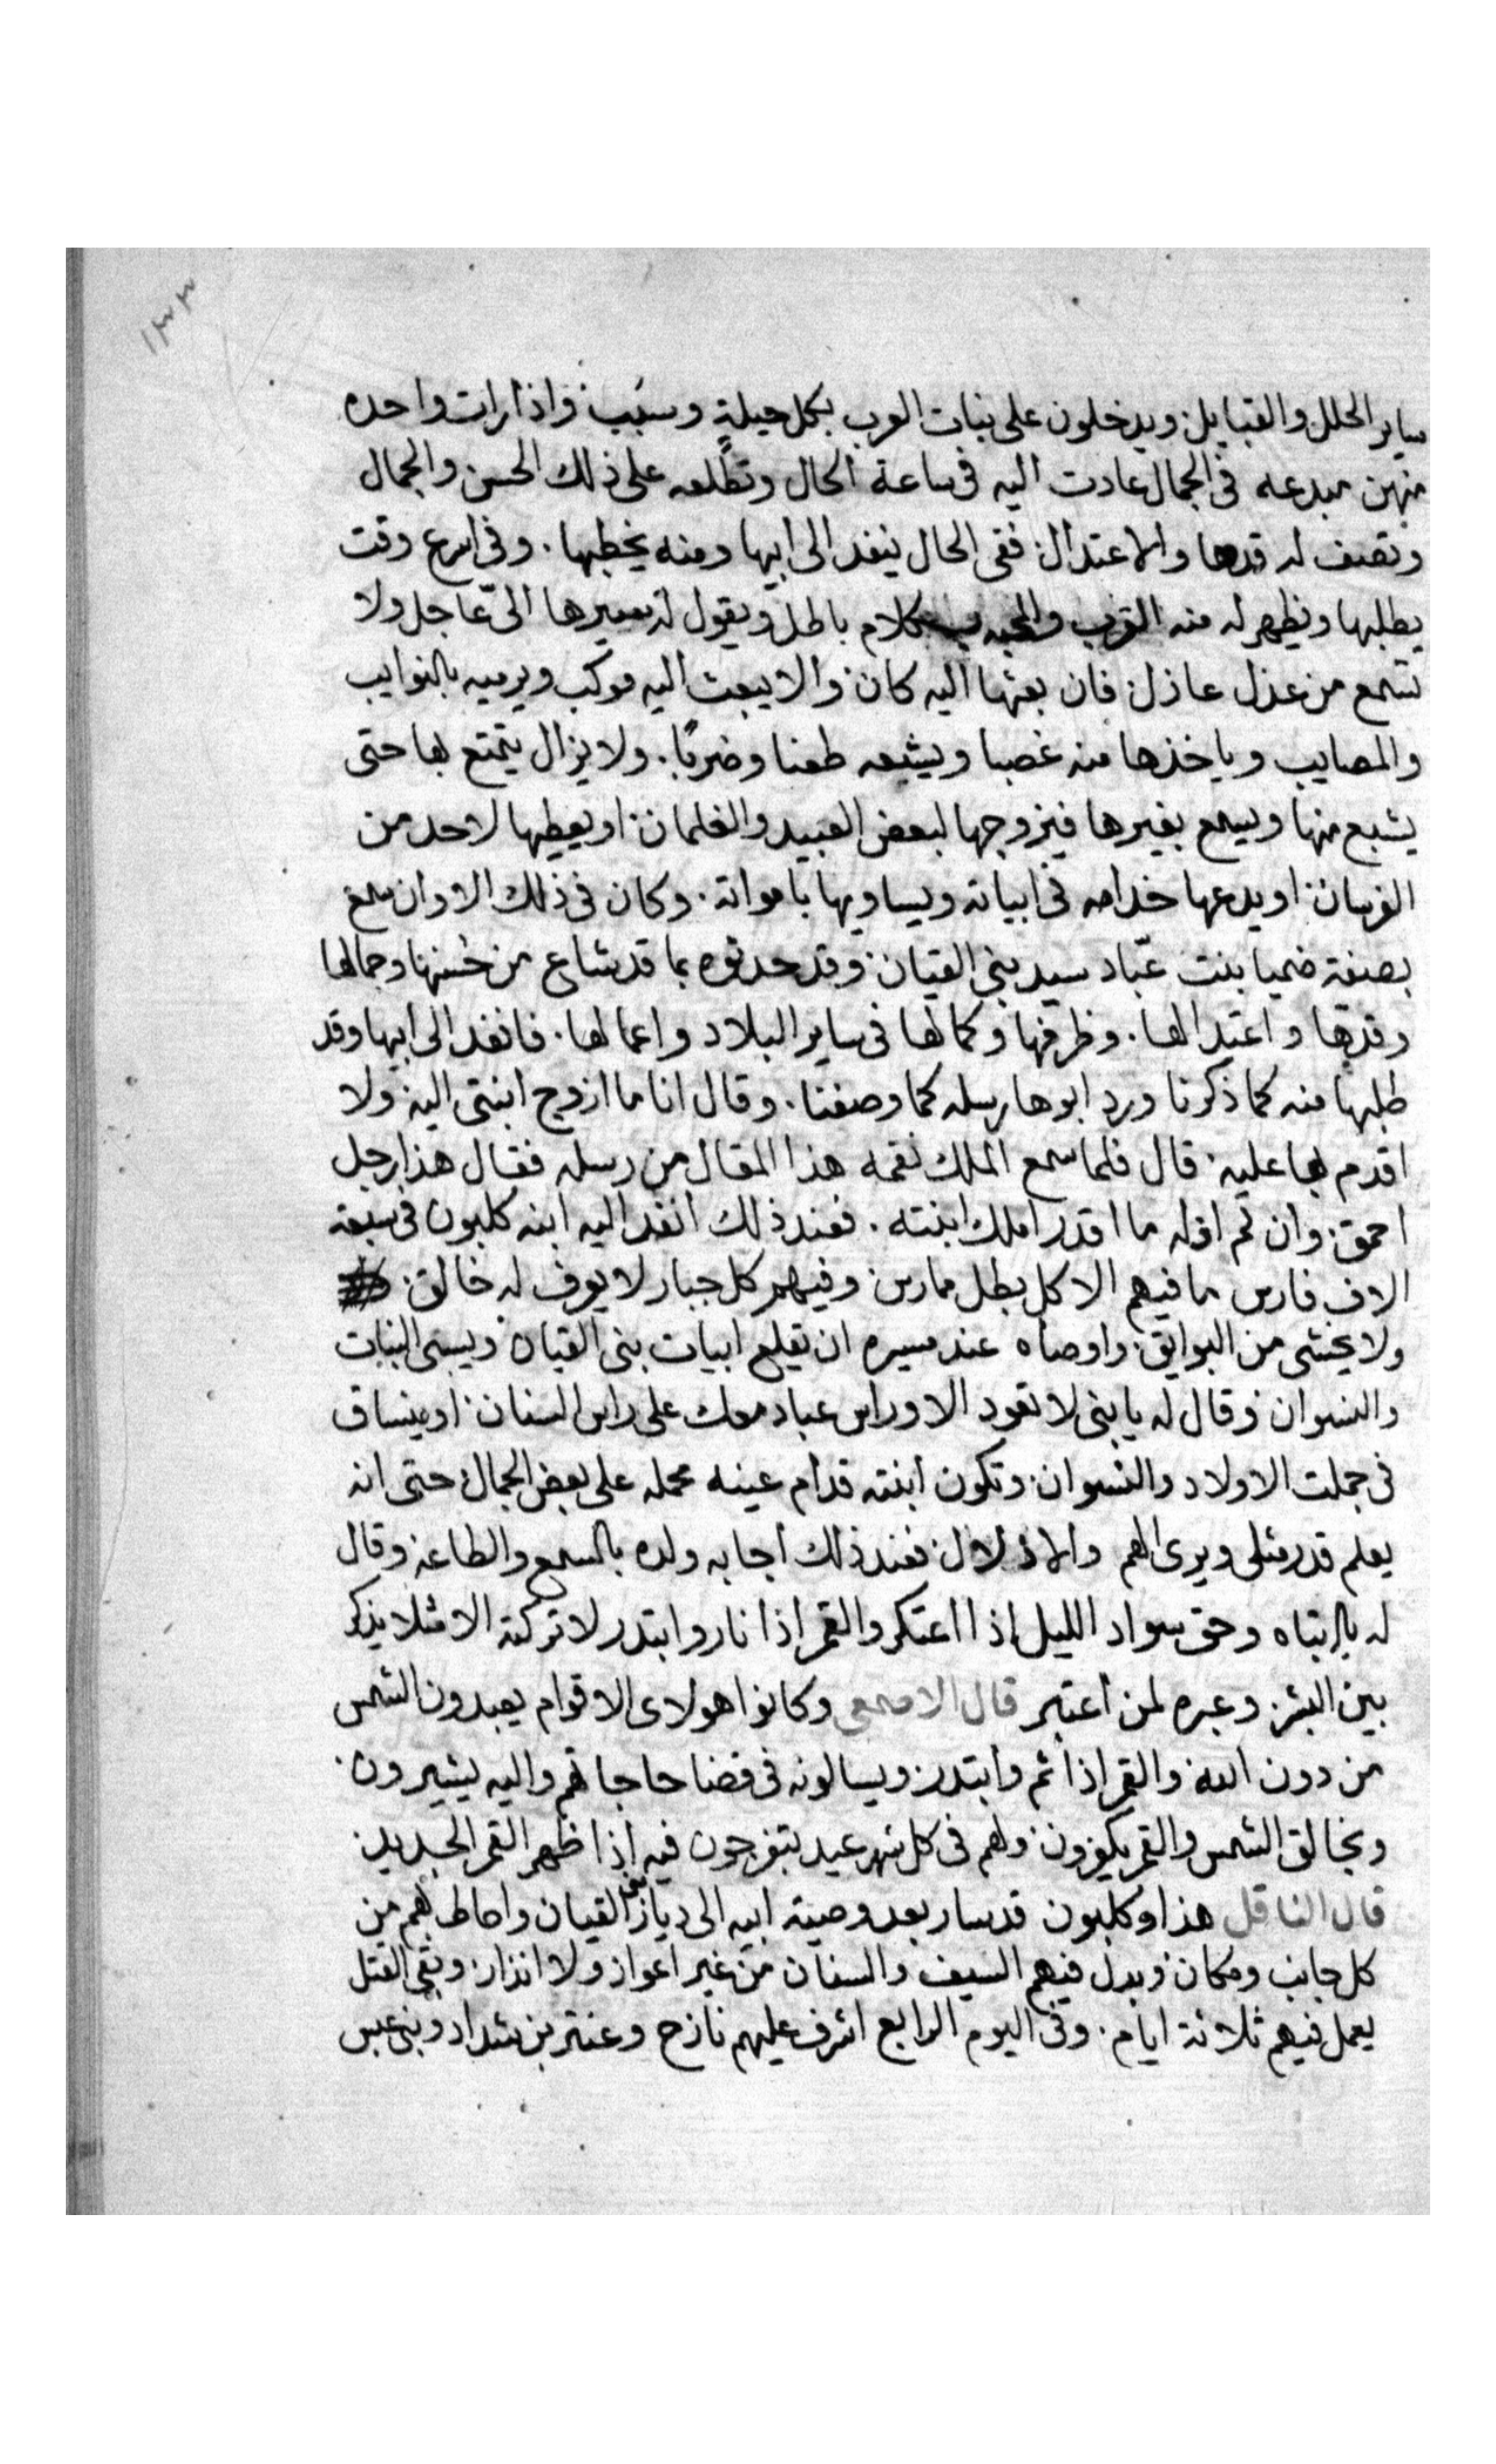 ١٣٣
ساير الحلل والقبايل ويدخلون على بنات العرب بكل حيلةٍ وسبب واذا رات واحده
منهن مبدعه في الجمال عادت اليه في ساعة الحال وتطلعه على ذلك الحسن والجمال
وتصف له قدها والاعتدال ففي الحال ينفد الى ابيها ومنه يخطبها. وفي اسرع وقت
يطلبها ويظهر له منه القرب والمحبه بكلام باطل ويقول له سيرها الىّ عاجل ولا
تسمع من عذل عاذل فان بعثها اليه كان والا يبعث اليه موكب ويرميه بالنوايب
والمصايب وياخذها منه غصبا ويشبعه طعنا وضربًا. ولا يزال يتمتع بها حتى
يشبع منها ويسمع بغيرها فيزوجها لبعض العبيد والغلمان او يعطيها لاحد من
الفرسان او يدعها خدامه في ابياته ويساويها باموانة. وكان في ذلك الاوان سمع
بصفة ضميا بنت عبّاد سيد بني القيان وقد حدثوه بما قد شاع من حُسنها وجمالها
وقدها واعتدالها. وظرفها وكمالها في ساير البلاد واعمالها. فانفد الى ابيها وقد
طلبها منه كما ذكرنا ورد ابوها رسله كما وصفنا. وقال انا ما ازوج ابنتي اليه ولا
اقدم بها عليه قال فلما سمع الملك نقمه هذا المقال من رسله فقال هذا رجل
احمق وان لم اذله ما اقدر املك ابنته. فعند ذلك انفد اليه ابنه كلبون في سبعة
الاف فارس ما فيهم الا كل بطل ممارس وفيهم كل جبار لا يعرف له خالق
ولا يخشى من البوايق واوصاه عند مسيره ان يقلع ابيات بني القيان ويسبي البنات
والنسوان وقال له يا بني لا تعود الا وراس عباد معك على راس السنان او ينساق
في جملت الاولاد والنسوان وتكون ابنته قدام عينه محمله على بعض الجمال حتى انه
يعلم قدر مثلي ويرى الهم والاذلال فعند ذلك اجابه ولده بالسمع والطاعه وقال
له يا ابتاه وحق سواد الليل اذا اعتكر والقمر اذا نار وابتدر لا تركته الا مثلا يذكر
بين البشر وعبره لمن اعتبر قال الاصمعي وكانوا هولاى الاقوام يعبدون الشمس
من دون الله والقمر اذا تم وابتدر ويسالونه في قضا حاجاتهم واليه يشيرون
وبخالق الشمس والقمر يكفرون ولهم في كل شهر عيد يتفرجون فيه اذا ظهر القمر الجديد
قال الناقل هذا وكلبون قد سار بعد وصية ابيه الى ديار بني القيان واحاط بهم من
كل جانب ومكان وبدل فيهم السيف والسنان من غير اعواز ولا انذار وبقي القتل
يعمل فيهم ثلاثة ايام. وفي اليوم الرابع اشرف عليهم نازح وعنتر بن شداد وبني عبس